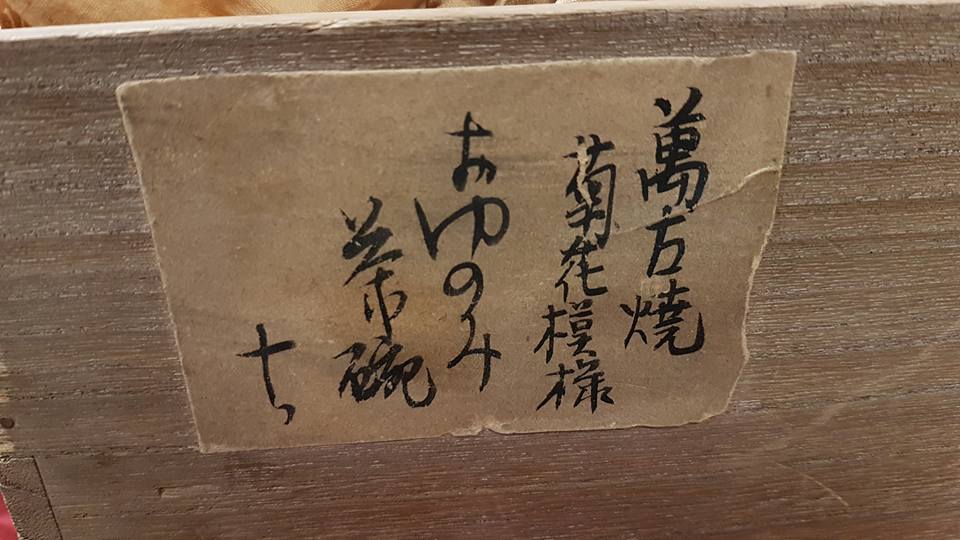 萬古焼
菊花模様
おゆのみ
茶碗
十